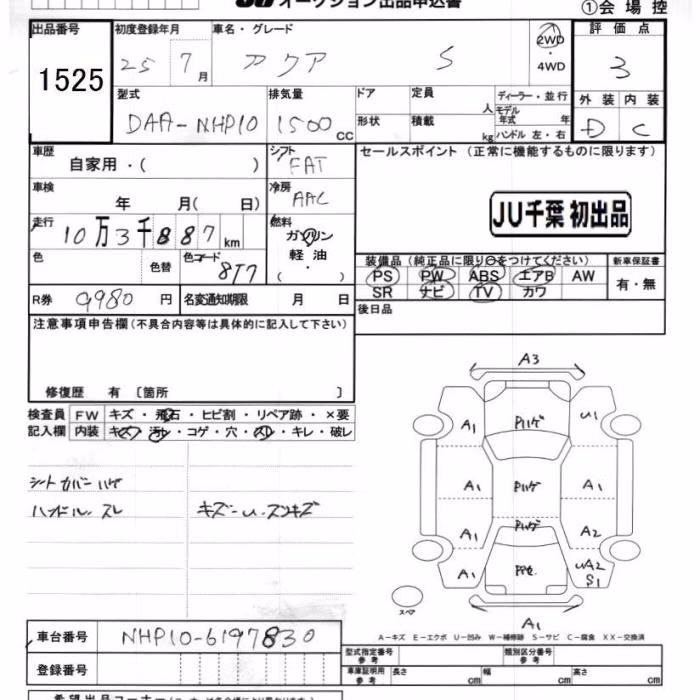 オークション出品申込書
①会場控
出品番号 初度登録年月 車名・グレード 評価点
1525 25 7月 アクア S 2WD・4WD 3
外装 内装
D C
型式 排気量 ドア 定員 人 ディーラー・並行
DAA-NHP10 1500CC 形状 積載 kg モデル年式 年
ハンドル 左・右
車歴 シフト セールスポイント (正常に機能するものに限ります)
自家用・( ) FAT
車検 冷房
年 月( 日) AAC JU千葉 初出品
走行 燃料
10万3千887km ガソリン
軽油
・( )
色 色替 色コード 8T7
装備品(純正品に限り○をつけてください) 新車保証書
PS PW ABS エアB AW 有・無
SR ナビ TV カワ
R券 9980円 名変通知期限 月 日
後日品
注意事項申告欄(不具合内容等は具体的に記入して下さい)
修復歴 有 〔箇所 〕
検査員 FW キズ・飛石・ヒビ割・リペア跡・×要
記入欄 内装 キズ・汚レ・コゲ・穴・スレ・キレ・破レ
シートカバーハゲ
ハンドル.スレ キズ-U.スリキズ
A3
A1 Pハゲ U1
A1 Pハゲ A1
A1 Pハゲ A2
A1 UA2
S1
スペア
A1
A-キズ E-エクボ U-凹み W-補修跡 S-サビ C-腐食 XX-交換済
車台番号 NHP10-6197830
登録番号
型式指定番号 参考 類別区分番号 参考
車庫証明用 参考 長さ cm 幅 cm 高さ cm